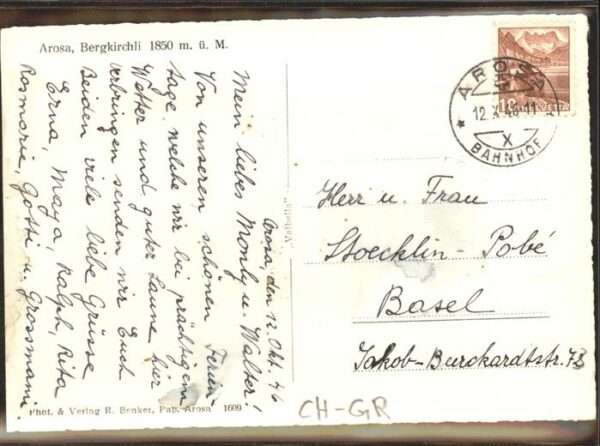 Arosa, Bergkirchli 1850 m. ü. M.
Arosa, den 12. Okt. 46
Mein liebes Monly u. Walter!
Von unseren schönen Ferien-
tage welche wir bei prächtigem
Wetter und guter Laune hier
verbringen senden wir Euch
Beiden viele liebe Grüsse
Erna, Maya, Ralph, Rita
Rosmarie, Gotti u. Grossmami.
AROSA
12.X.46-11
X
BAHNHOF
Herr u. Frau
Stoecklin-Pobé
Basel
Jakob-Burckardtstr. 73
Phot. & Verlag R. Benker, Pap. Arosa 1609
CH-GR